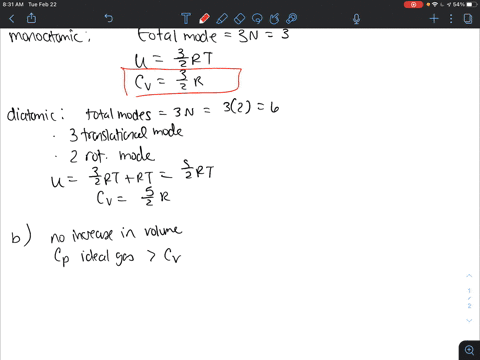 8:31 AM Tue Feb 22
54%
monoatomic: total mode = 3N = 3
U = 3/2 RT
Cv = 3/2 R
diatomic: total modes = 3N = 3(2) = 6
· 3 translational mode
· 2 rot. mode
U = 3/2 RT + RT = 5/2 RT
Cv = 5/2 R
b) no increase in volume
Cp ideal gas > Cv
1
/
2